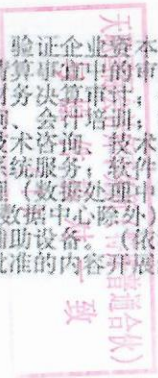 验证企业资本
清算事宜中的审
财务决算审计；
询、会计培训；
技术咨询、技术
系统服务；软件
理（数据处理中
数据中心除外）
辅助设备。（依
批准的内容开展
天
普通合伙）
一致